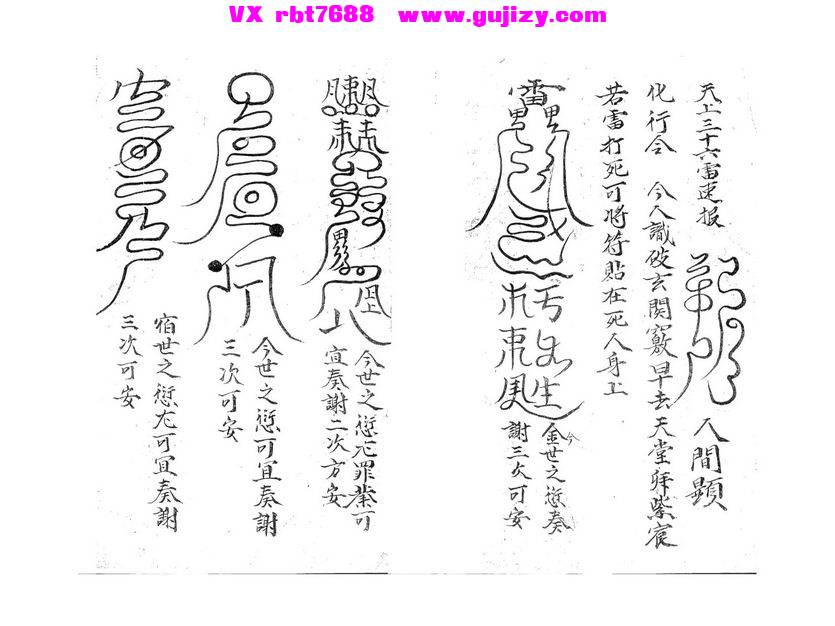 VX rbt7688 www.gujizy.com
天上三十六雷速报
人間顯
化行令 今人識破玄関竅早去天堂拜紫宸
若雷打死可将符貼在死人身上
雷
金世之愆奏
今
謝三次可安
今世之愆尤罪業可
宜奏謝二次方安
今世之愆可宜奏謝
三次可安
宿世之愆尤可宜奏謝
三次可安